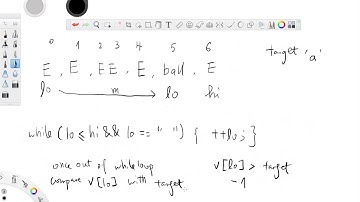 0 1 2 3 4 5 6
target 'a'
E, E, EE, E, ball, E
lo m lo hi
while (lo ≤ hi && lo == " ") { ++lo; }
once out of while loop v[lo] > target
compare v[lo] with target. -1